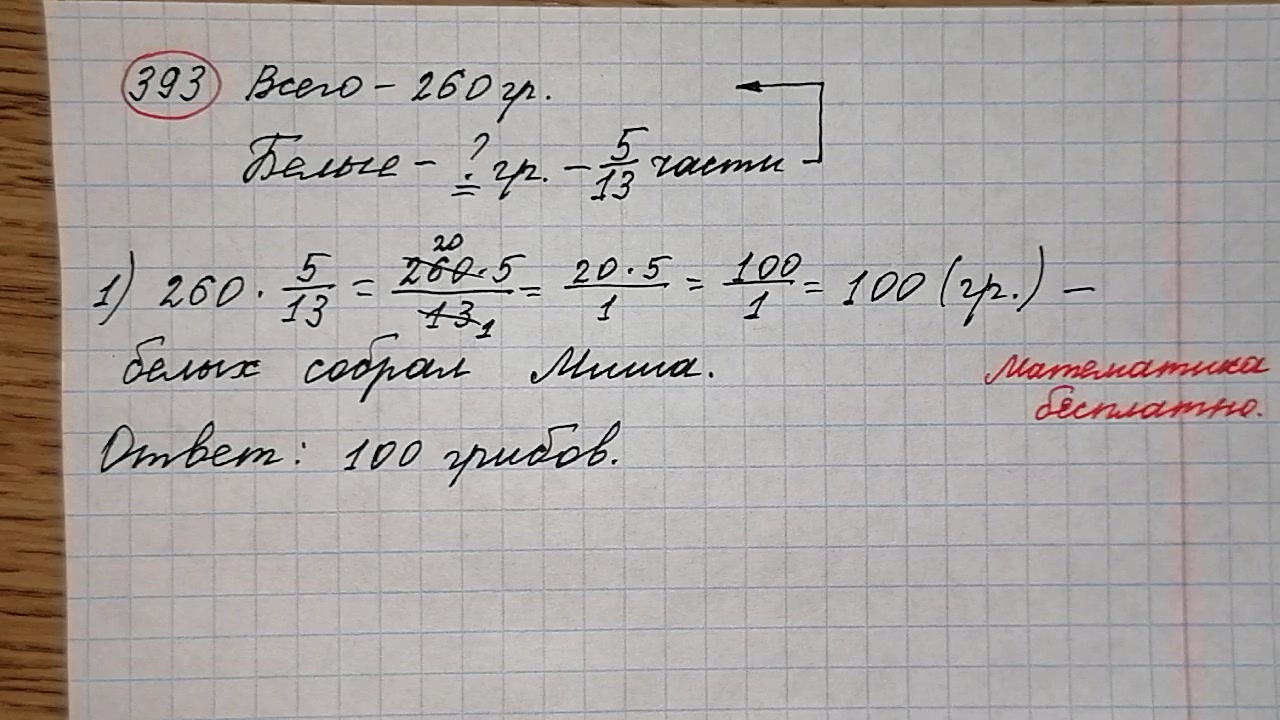 393 Всего - 260 гр.
Белые - ? гр. - 5/13 части
1) 260 · 5/13 = 260·5/13 = 20·5/1 = 100/1 = 100 (гр.) -
20
1
белых собрал Миша.
Математика
бесплатно.
Ответ: 100 грибов.